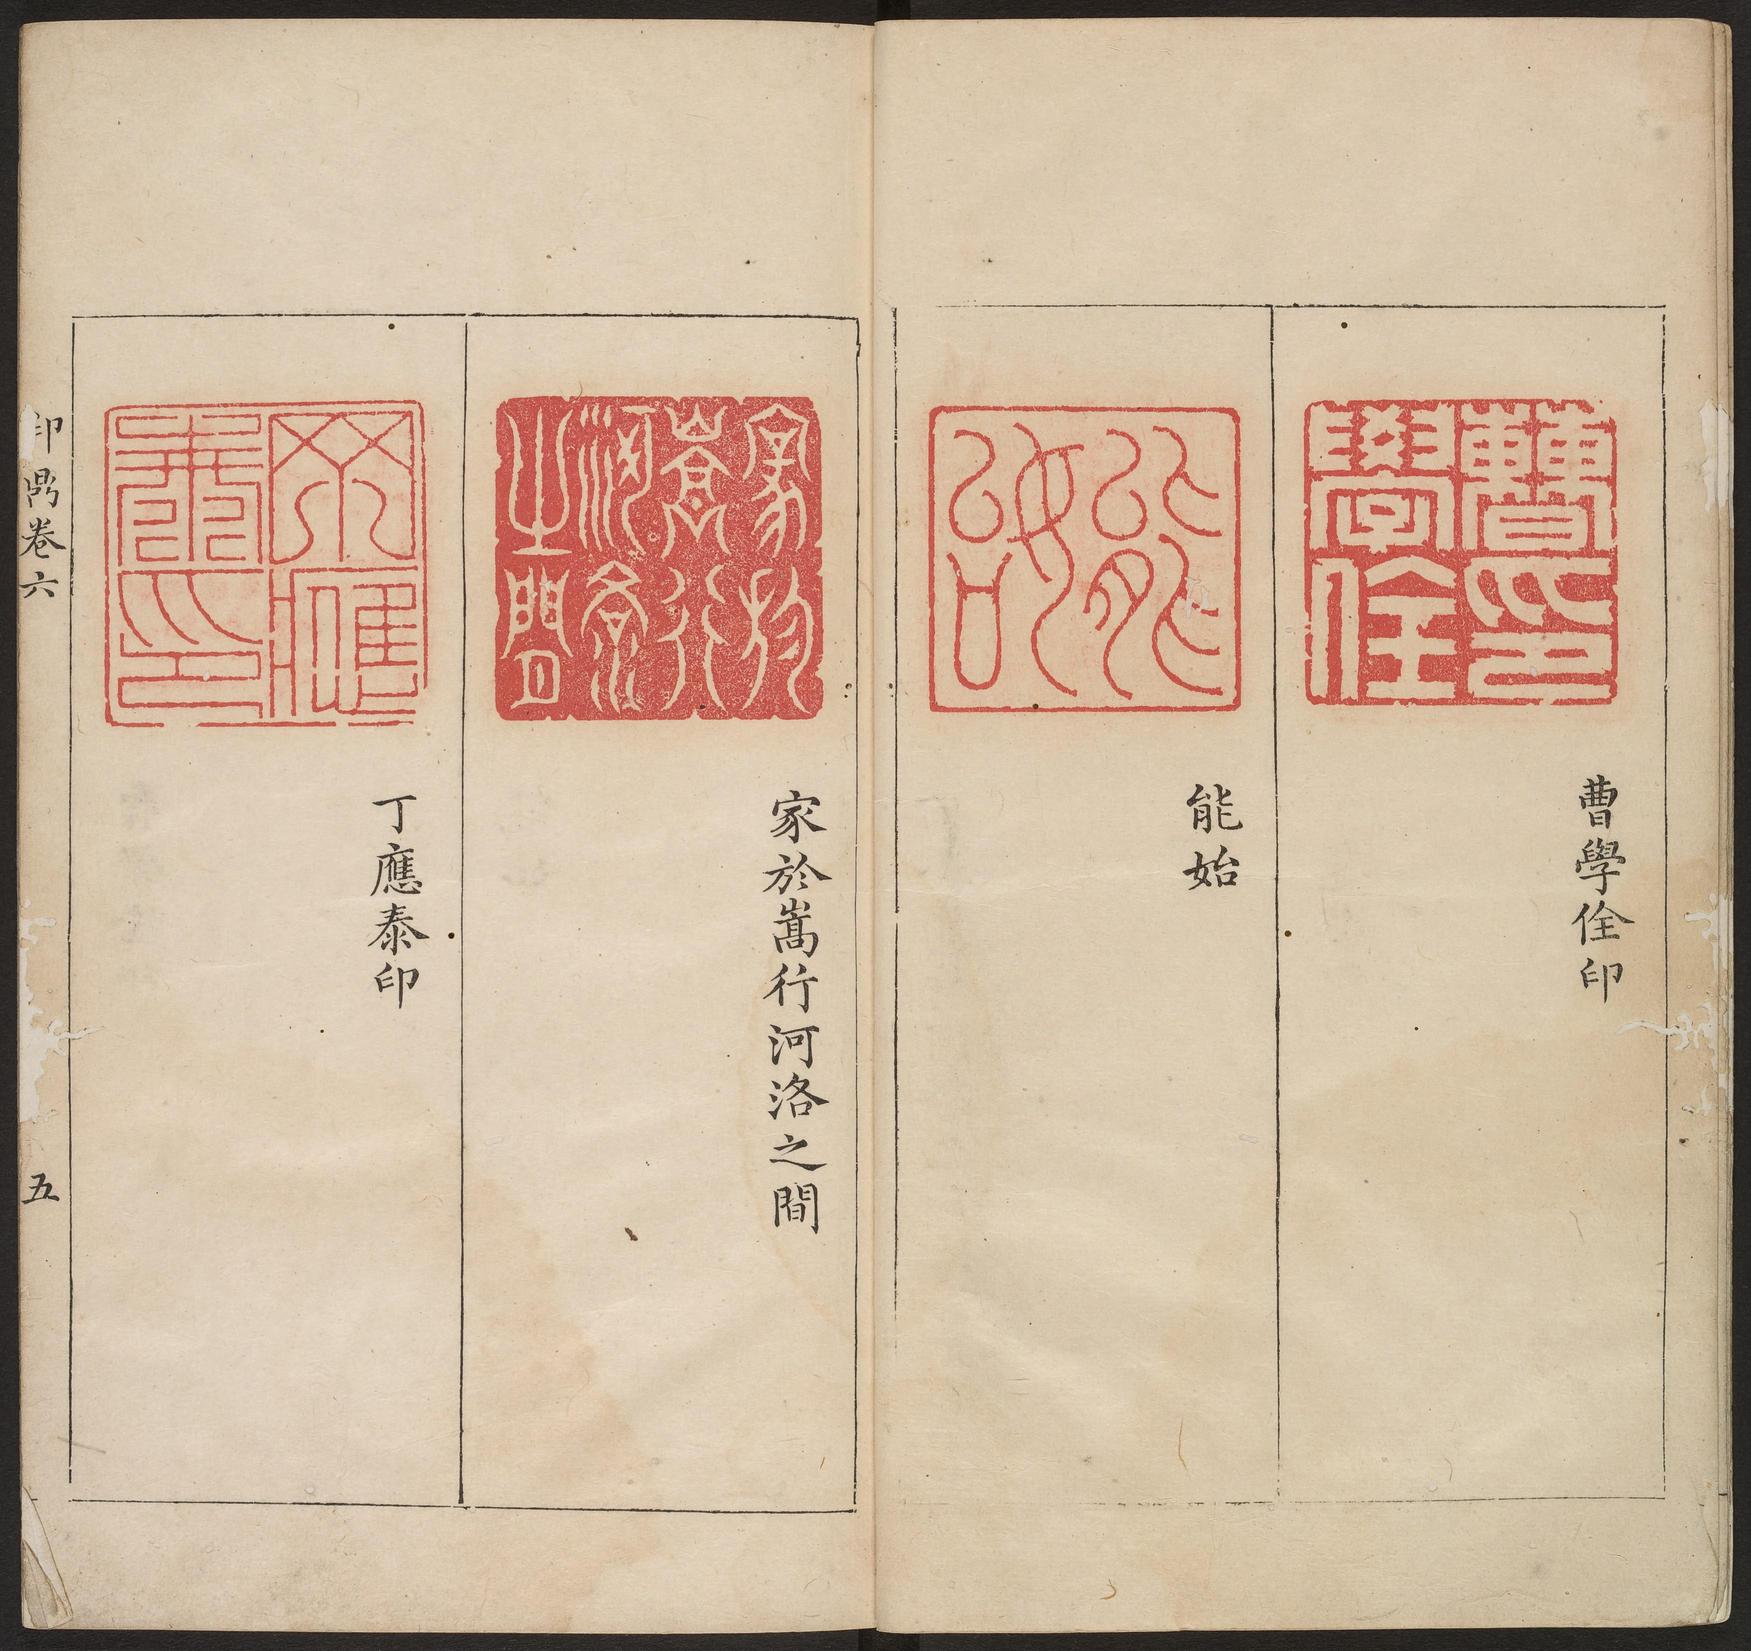 曹學佺印
能始
家於嵩行河洛之間
丁應泰印
印鼎卷六
五